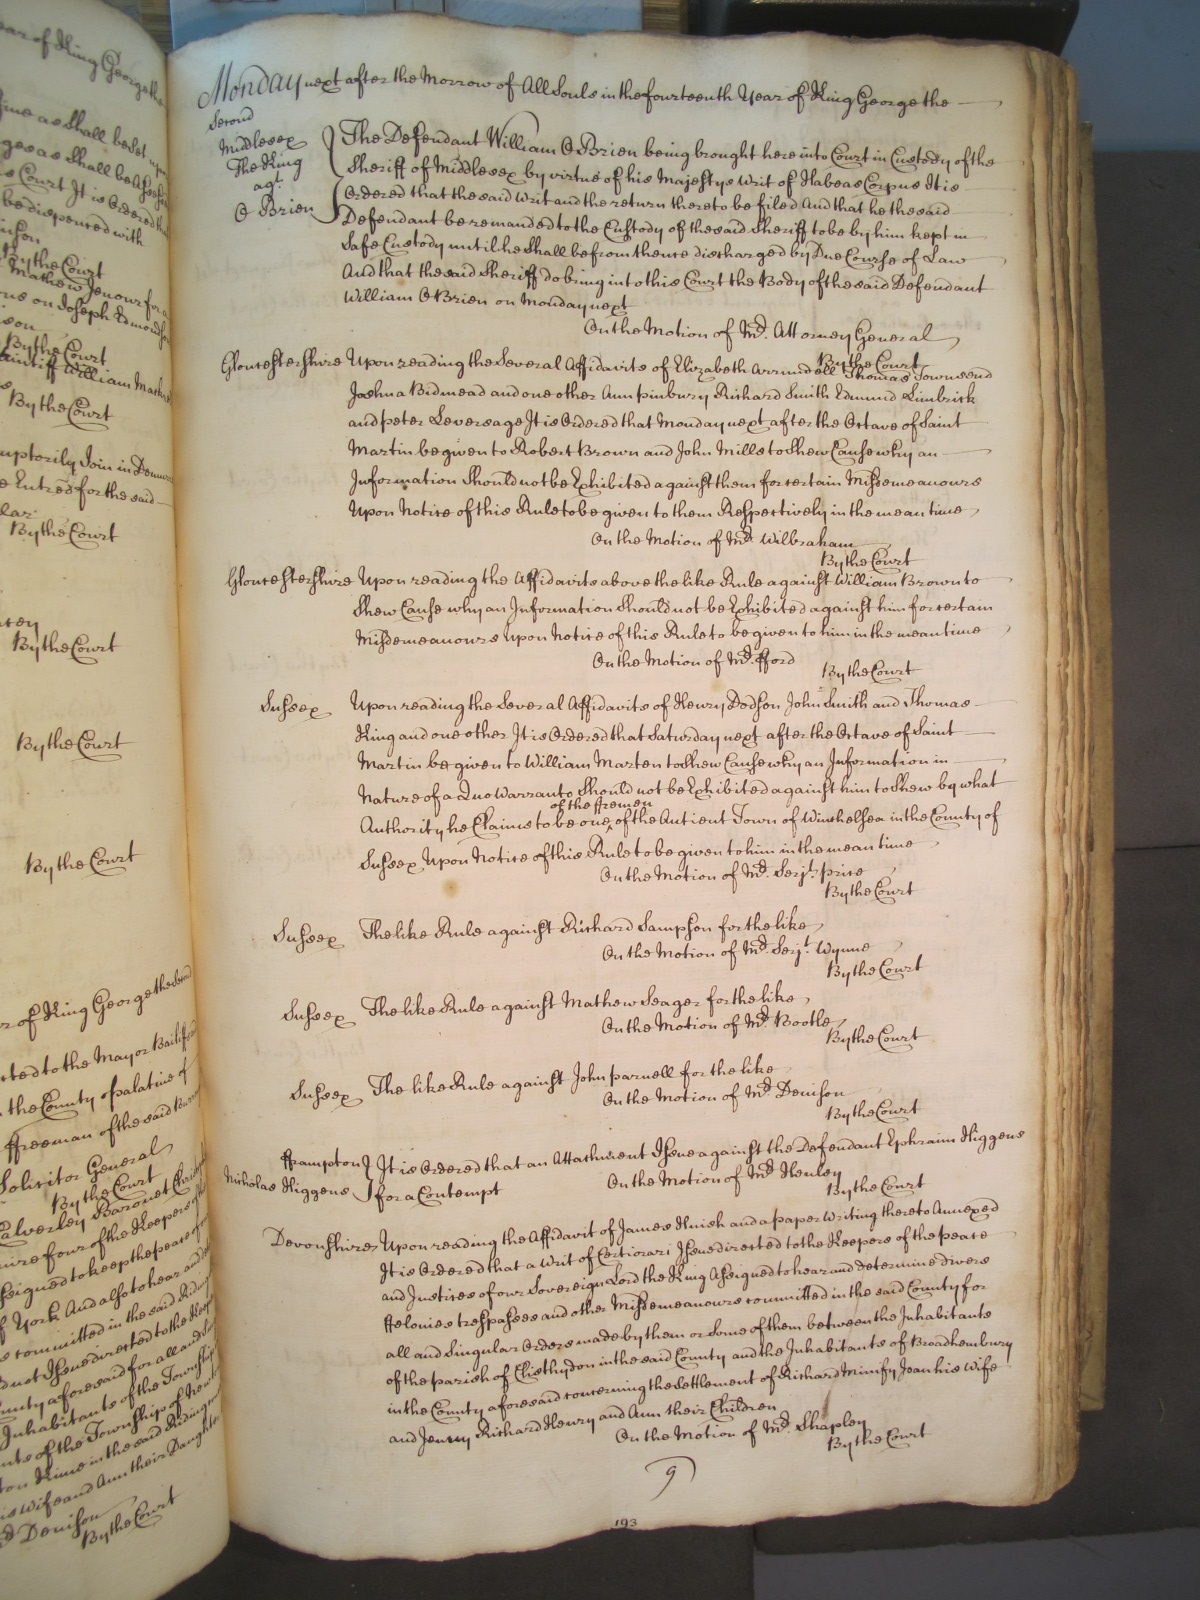 ear of King George the
time as shall be Set
ges as shall be Assess
s Court It is Ordered th
be dispenced with
By the Court
Mathew Jenour for a
on Joseph Edmonds
By the Court
aintiff William
By the Court
mptorily Join in Demurr
e Entred for the said
By the Court
By the Court
By the Court
By the Court
r of King George the Second
cted to the Mayor Bailiffs
the County palatine of
ffreeman of the said
Solicitor General
By the Court
Calverley Baronet
ire four of the Keepers of
ssigned to keep the peace
f York And also to hear and
s committed in the said Riding
d not Issue directed to the Keep
unty aforesaid for all and
Inhabitants of the Township
nts of the Township of
in the said Riding
is Wife and Ann their Daughter
Denison
By the Court
Monday next after the Morrow of All Souls in the fourteenth Year of King George the
Second
Middlesex
The King
agt.
O Brien
The Defendant William O Brien being brought here into Court in Custody of the
Sheriff of Middlesex by virtue of his Majestys Writ of Habeas Corpus It is
Ordered that the said Writ and the return thereto be filed And that he the said
Defendant be remanded to the Custody of the said Sheriff to be by him kept in
Safe Custody until he shall be from thence discharged by Due Course of Law
And that the said Sheriff do bring into this Court the Body of the said Defendant
William O Brien on Monday next
On the Motion of Mr. Attorney General
By the Court
Gloucestershire Upon reading the Several Affidavits of Elizabeth Arrundell Thomas Townsend
Joshua Bidmead and one other Ann pinbury Richard Smith Edmund Limbrick
and peter Leversage It is Ordered that Monday next after the Octave of Saint
Martin be given to Robert Brown and John Mills to Shew Cause why an
Information Should not be Exhibited against them for certain Misdemeanours
Upon Notice of this Rule to be given to them Respectively in the mean time
On the Motion of Mr. Wilbraham
By the Court
Gloucestershire Upon reading the Affidavits above the like Rule against William Brown to
Shew Cause why an Information Should not be Exhibited against him for certain
Misdemeanours Upon Notice of this Rule to be given to him in the mean time
On the Motion of Mr. fford
By the Court
Sussex Upon reading the Several Affidavits of Henry Dodson John Smith and Thomas
King and one other It is Ordered that Saturday next after the Octave of Saint
Martin be given to William Marten to Shew Cause why an Information in
Nature of a Quo Warranto Should not be Exhibited against him to Shew by what
of the ffremen
Authority he Claims to be one ^ of the Antient Town of Winchelsea in the County of
Sussex Upon Notice of this Rule to be given to him in the mean time
On the Motion of Mr. Serjt. price
By the Court
Sussex The like Rule against Richard Sampson for the like
On the Motion of Mr. Serjt. Wynne
By the Court
Sussex The like Rule against Mathew Seager for the like
On the Motion of Mr. Bootle
By the Court
Sussex The like Rule against John parnell for the like
On the Motion of Mr. Denison
By the Court
fframpton
Nicholas Higgens
It is Ordered that an Attachment Issue against the Defendant Ephraim Higgens
for a Contempt
On the Motion of Mr. Henley
By the Court
Devonshires Upon reading the Affidavit of James Huish and a paper Writing thereto Annexed
It is Ordered that a Writ of Certiorari Issue directed to the Keepers of the peace
and Justices of our Sovereign Lord the King Assigned to hear and determine divers
ffelonies trespasses and other Misdemeanours committed in the said County for
all and Singular Orders made by them or some of them between the Inhabitants
of the parish of Clisthydon in the said County and the Inhabitants of Broadhembury
in the County aforesaid concerning the Settlement of Richard Minify Jean his Wife
and Jenny Richard Henry and Ann their Children
On the Motion of Mr. Shapley
By the Court
9
193